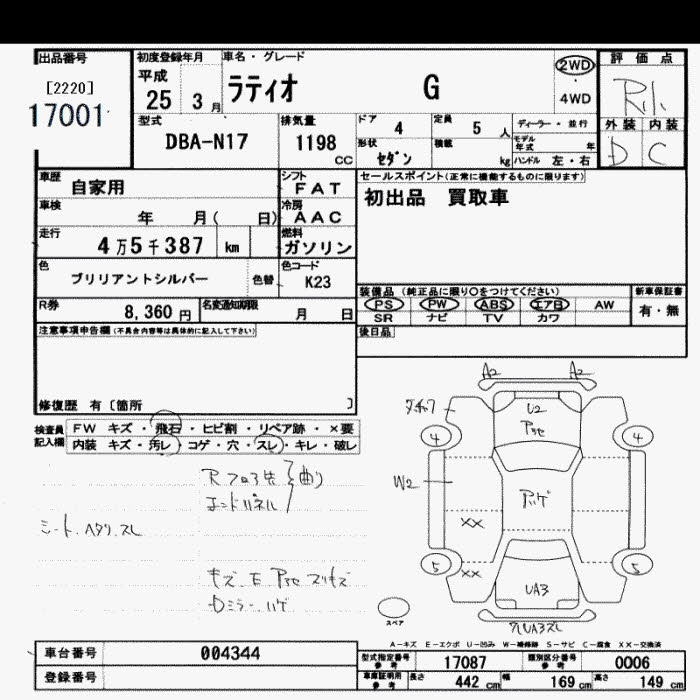 出品番号
[2220]
17001
初度登録年月
平成
25 3月
車名・グレード
ラティオ G
2WD
4WD
評価点
外装 内装
D C
型式
DBA-N17
排気量
1198 CC
ドア 4
定員 5 人
ディーラー・並行
形状 セダン
積載 kg
モデル年式 年
ハンドル 左・右
車歴
自家用
シフト
FAT
車検
年 月( 日)
冷房
AAC
走行
4万5千387 km
燃料
ガソリン
色
ブリリアントシルバー
色替
色コード
K23
R券
8,360円
名変通知期限
月 日
セールスポイント(正常に機能するものに限ります)
初出品 買取車
装備品 (純正品に限り〇をつけてください)
PS PW ABS エアB AW
SR ナビ TV カワ
新車保証書
有・無
後日品
注意事項申告欄(不具合内容等は具体的に記入して下さい)
修復歴 有〔箇所 〕
検査員記入欄
FW キズ・飛石・ヒビ割・リペア跡・×要
内装 キズ・汚レ・コゲ・穴・スレ・キレ・破レ
Rフロア先
エンドパネル
曲り
シート.ヘタリ.スレ
A2 A2
U2
4 4
W2
XX
XX
5 5
UA3
スペア
A-キズ E-エクボ U-凹み W-補修跡 S-サビ C-腐食 XX-交換済
車台番号
004344
登録番号
型式指定番号
参考
17087
類別区分番号
参考
0006
車庫証明用
参考
長さ 442 cm
幅 169 cm
高さ 149 cm